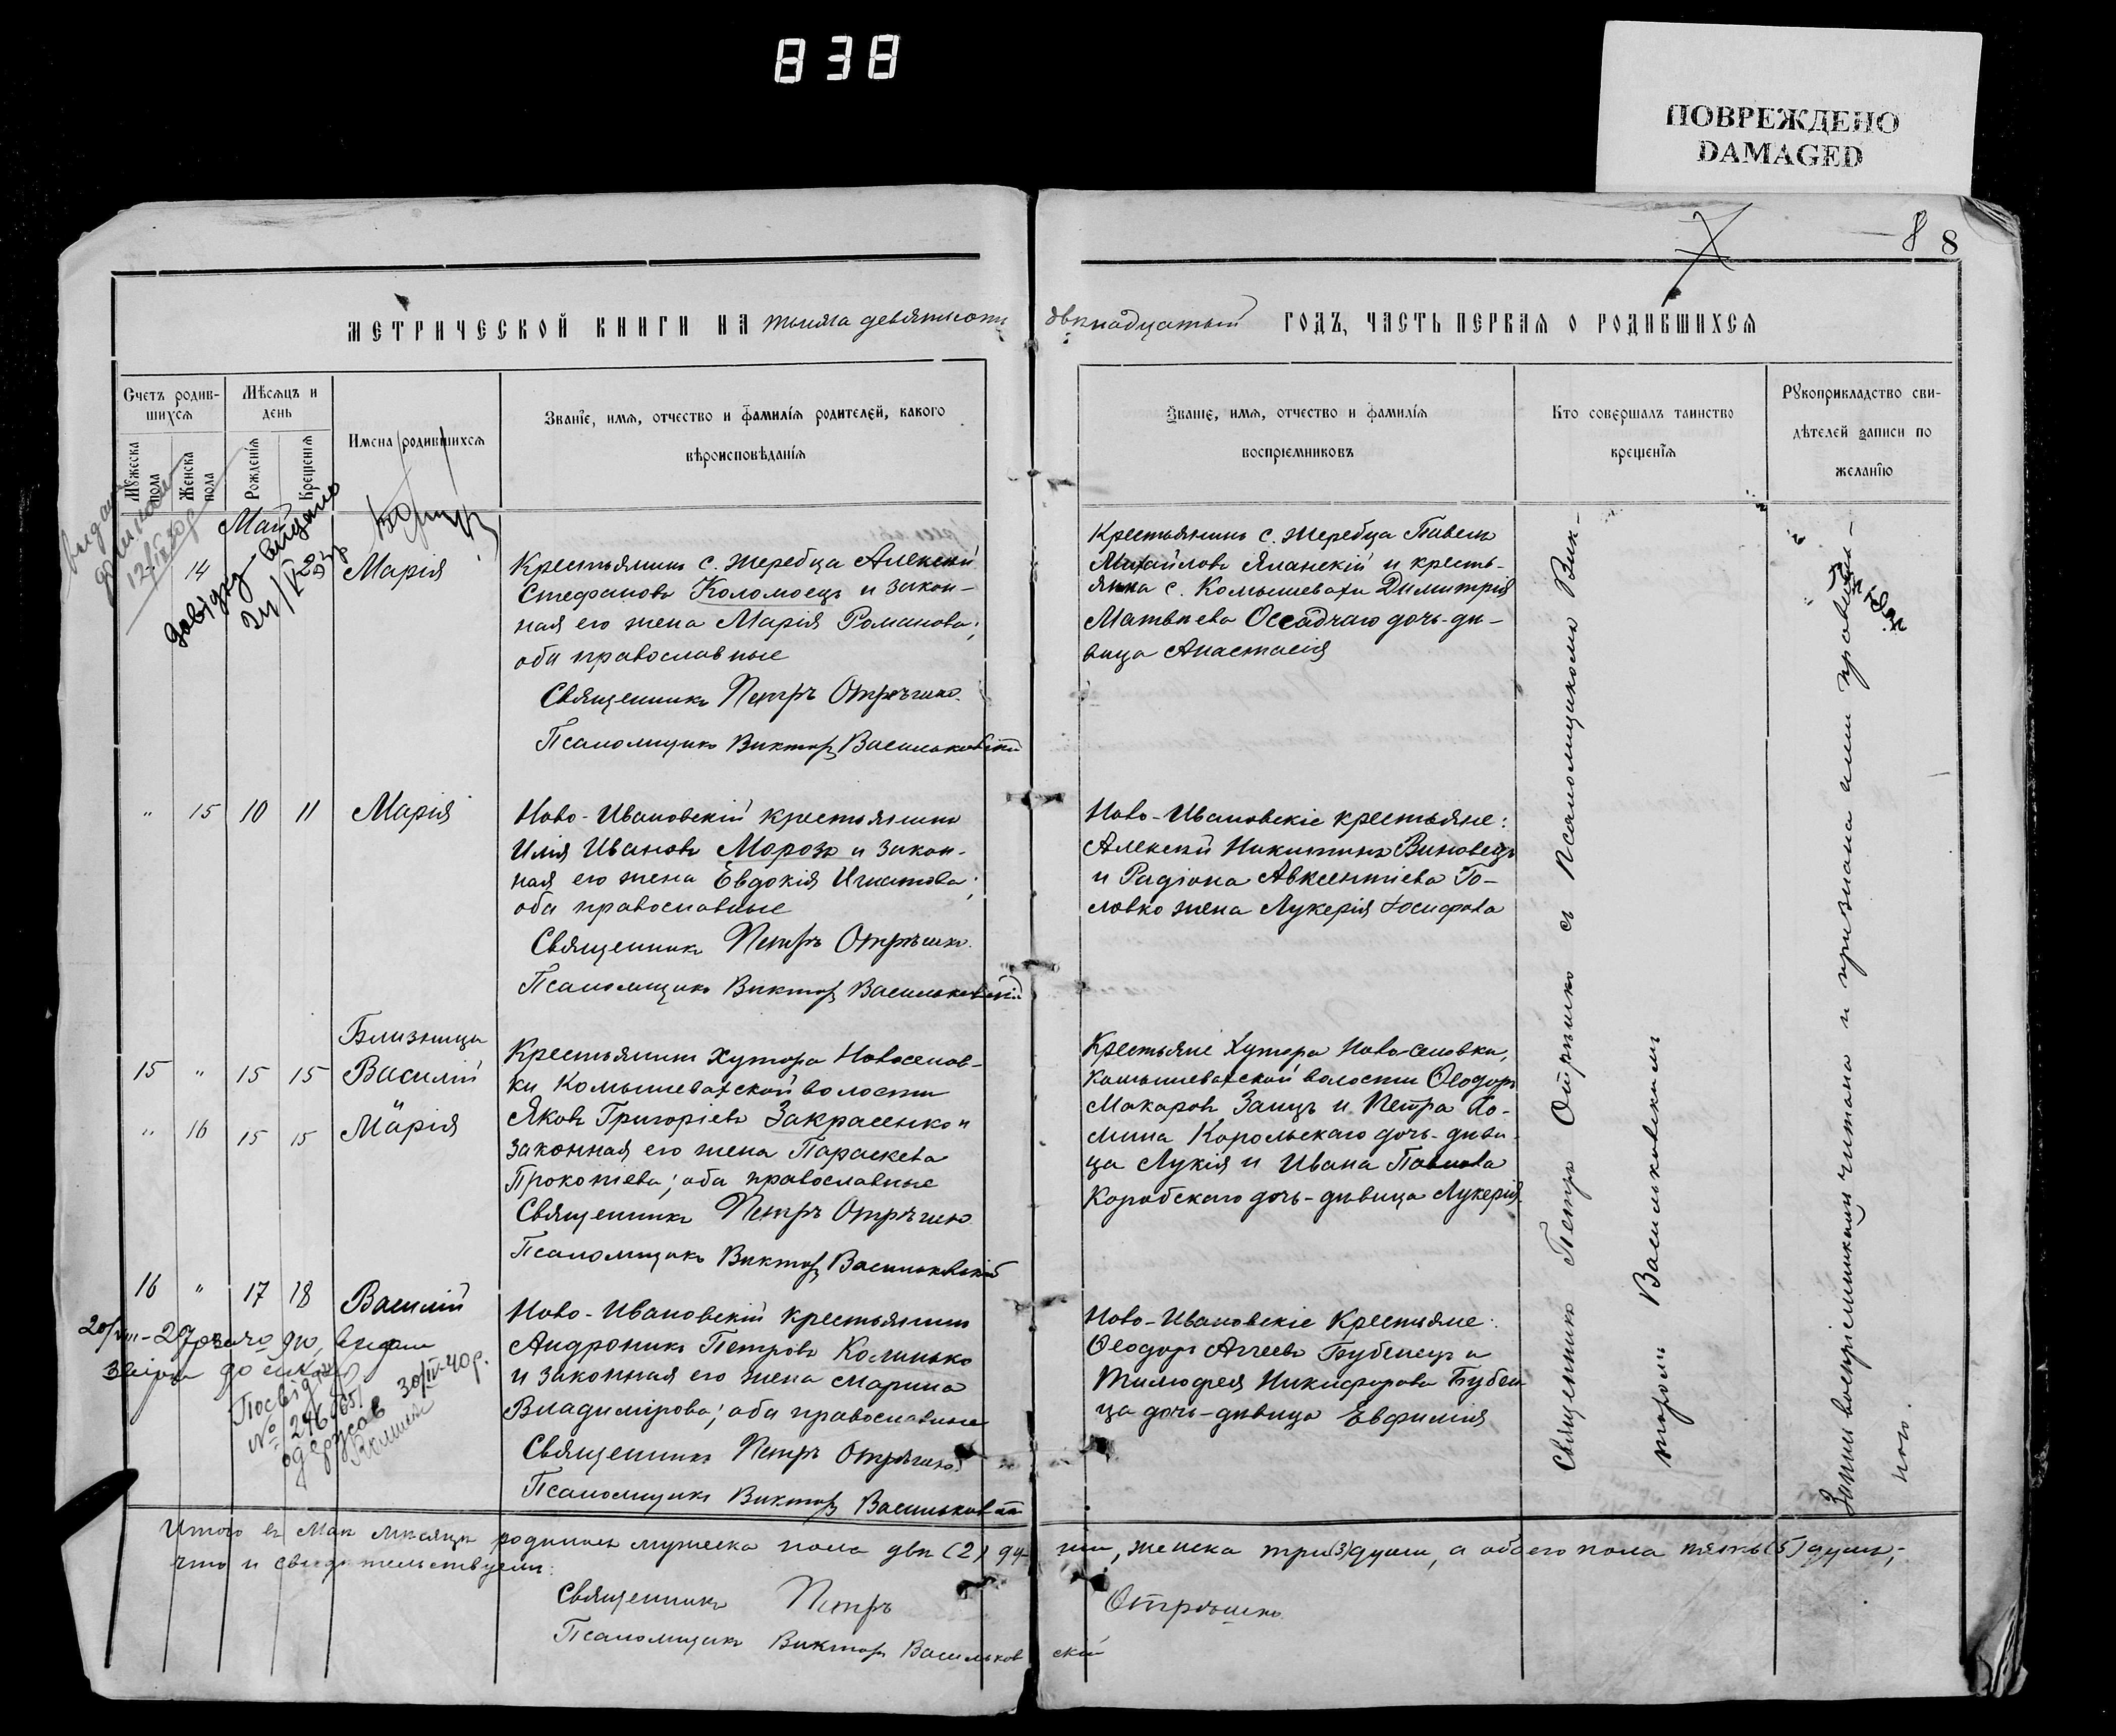 838
ПОВРЕЖДЕНО
DAMAGED
8 8
МЕТРИЧЕСКОЙ КНИГИ НА тысяча девятьсотъ двѣнадцатый ГОДЪ, ЧАСТЬ ПЕРВАЯ О РОДИВШИХСЯ
Счетъ родив-
шихся
Мужеска пола
Женска пола
Мѣсяцъ и
день
Рожденія
Крещенія
Имена родившихся
Званіе, имя, отчество и фамилія родителей, какого
вѣроисповѣданія
Званіе, имя, отчество и фамилія
воспріемниковъ
Кто совершалъ таинство
крещенія
Рукоприкладство сви-
дѣтелей записи по
желанію
Май
14
Марія
Крестьянинъ с. Жеребца Алексѣй
Стефановъ Коломоецъ и закон-
ная его жена Марія Романова;
оба православные
Священникъ Петръ Отрѣшко
Псаломщикъ Викторъ Васильковскій
Крестьянинъ с. Жеребца Павелъ
Михайловъ Яланскій и кресть-
янка с. Комышевахи Димитрія
Матвѣева Осадчаго дочь-дѣ-
вица Анастасія
" 15 10 11 Марія
Ново-Ивановскій крестьянинъ
Илія Ивановъ Морозъ и закон-
ная его жена Евдокія Игнатова;
оба православные
Священникъ Петръ Отрѣшко
Псаломщикъ Викторъ Васильковскій
Ново-Ивановскіе крестьяне:
Алексѣй Никитинъ Виновецъ
и Радіона Авксентіева Го-
ловко жена Лукерія Іосифова
Близнецы
15 " 15 15 Василій
" 16 15 15 Марія
Крестьянинъ хутора Новоселов-
ки Комышевахской волости
Яковъ Григоріевъ Закрасенко и
законная его жена Параскева
Прокопіева; оба православные
Священникъ Петръ Отрѣшко
Псаломщикъ Викторъ Васильковскій
Крестьяне хутора Ново-селовки,
Комышевахской волости Ѳеодоръ
Макаровъ Заицъ и Петра Ко-
смина Корольскаго дочь-дѣви-
ца Лукія и Ивана Павлова
Коробскаго дочь-дѣвица Лукерія
16 " 17 18 Василій
Посвідку
№ 296
одержав 30/III-40р.
Ново-Ивановскій крестьянинъ
Андроникъ Петровъ Колинько
и законная его жена Марина
Владимірова; оба православные
Священникъ Петръ Отрѣшко
Псаломщикъ Викторъ Васильковскій
Ново-Ивановскіе крестьяне:
Ѳеодоръ Аггеевъ Бубенецъ и
Тимоѳея Никифорова Бубен
ца дочь-дѣвица Евфимія
Священникъ Петръ Отрѣшко съ псаломщикомъ Вик-
торомъ Васильковскимъ
Запись воспріемниками читана и признана ими правиль-
ною.
Итого въ Маѣ мѣсяцѣ родилось мужеска пола двѣ (2) ду- ши, женска три (3) души, а обоего пола пять (5) душъ,-
что и свидѣтельствуемъ:
Священникъ Петръ Отрѣшко
Псаломщикъ Викторъ Васильков скій